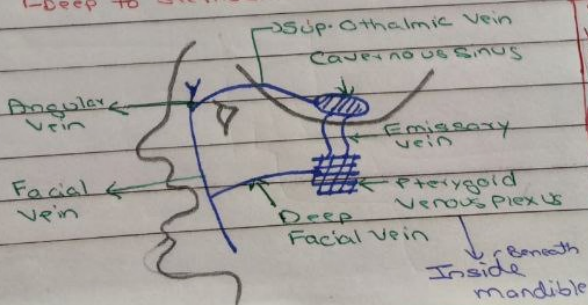 1-Deep to
Sup. Othalmic vein
Cavernous sinus
Angular
vein
Emissary
vein
Facial
vein
Pterygoid
venous plexus
Deep
Facial vein
Beneath
Inside
mandible